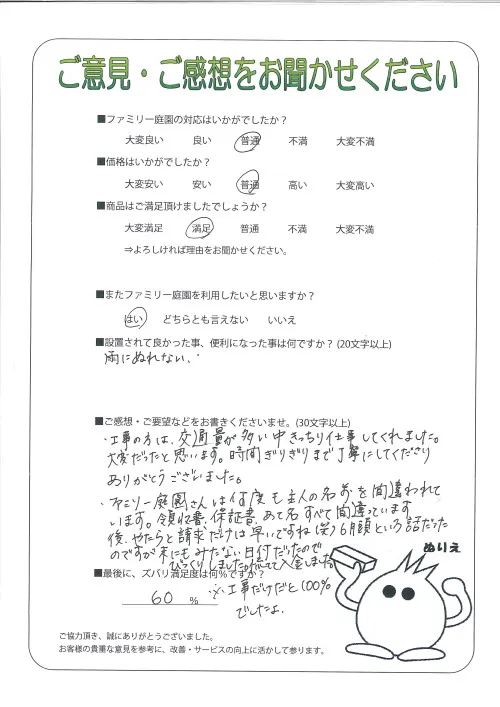 ご意見・ご感想をお聞かせください
■ファミリー庭園の対応はいかがでしたか？
大変良い 良い 普通 不満 大変不満
■価格はいかがでしたか？
大変安い 安い 普通 高い 大変高い
■商品はご満足頂けましたでしょうか？
大変満足 満足 普通 不満 大変不満
⇒よろしければ理由をお聞かせください。
■またファミリー庭園を利用したいと思いますか？
はい どちらとも言えない いいえ
■設置されて良かった事、便利になった事は何ですか？(20文字以上)
雨にぬれない、
■ご感想・ご要望などをお書きくださいませ。(30文字以上)
・工事の方は、交通量が多い中きっちり仕事してくれました。
大変だったと思います。時間ぎりぎりまで丁寧にしてくださり
ありがとうございました。
・ファミリー庭園さんは何度も主人の名前を間違われて
います。領収書、保証書、あて名すべて間違っています
後、やたらと請求だけは早いですね(笑)6月頃という話だった
のですが末にもみたない日付だったので
びっくりしました。あわてて入金しました。
ぬりえ
■最後に、ズバリ満足度は何％ですか？
60 %
※工事だけだと100%
でしたよ。
ご協力頂き、誠にありがとうございました。
お客様の貴重な意見を参考に、改善・サービスの向上に活かして参ります。